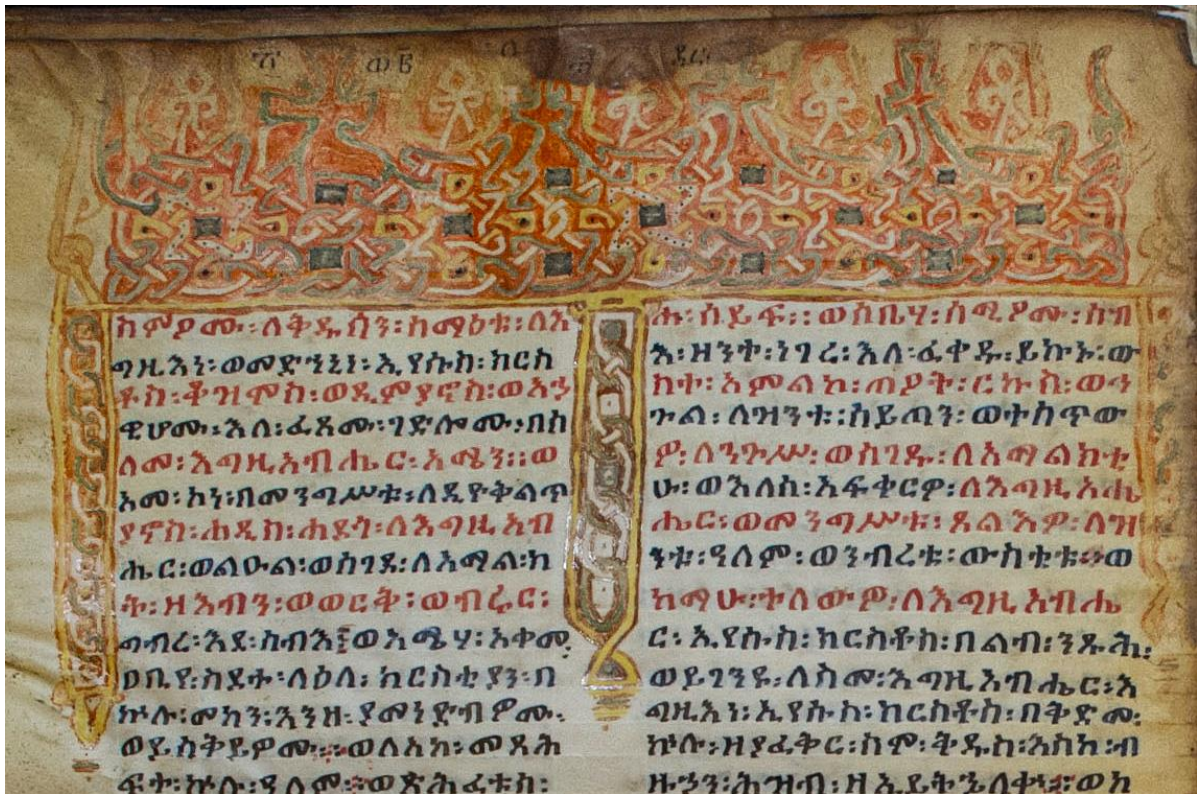 ስምዖሙ፡ ለቅዱሳን፡ ሰማዕቱ፡ ለእ
ግዚእነ፡ ወመድኅኒነ፡ ኢየሱስ፡ ክርስ
ቶስ፡ ቆዝሞስ፡ ወዲምያኖስ፡ ወአኃ
ዊሆሙ፡ እለ፡ ፈጸሙ፡ ገድሎሙ፡ በስ
ለመ፡ እግዚአብሔር፡ አሜን፡፡ ወ
አመ፡ ኮነ፡ በመንግሥቱ፡ ለዲዮቅልጥ
ያኖስ፡ ሐዲስ፡ ሐደጎ፡ ለእግዚአብ
ሔር፡ ወልዑል፡ ወሰገደ፡ ለአማል፡ ክ
ት፡ ዘእብን፡ ወወርቅ፡ ወብሩር፡
ግብረ፡ እደ፡ ሰብእ፤ ወአሜሃ፡ አቀመ
ዐቢየ፡ ስደተ፡ ላዕለ፡ ክርስቲያን፡ በ
ኵሉ፡ መካን፡ እንዘ፡ ያመነድብዎሙ፡
ወይስቅይዎሙ፡፡ ወለአከ፡ መጸሕ
ፍተ፡ ኵሉ፡ ዓለም፡፡ ወጽሕፈቱሰ፡
ሑ፡ ሰይፍ፡፡ ወሰቢሃ፡ ሰሚዖሙ፡ ሰብ
እ፡ ዘንተ፡ ነገረ፡ እለ፡ ፈቀዱ፡ ይኩኑ፡ ው
ስተ፡ አምልኮ፡ ጣዖት፡ ርኩስ፡ ወኀ
ጕል፡ ለዝንቱ፡ ሰይጣን፡ ወተሰጥው
ዎ፡ ለንጉሥ፡ ወሰገዱ፡ ለአማልክቲ
ሁ፡ ወእለሰ፡ አፍቀርዎ፡ ለእግዚአብ
ሔር፡ ወመንግሥቱ፡ ጸልእዎ፡ ለዝ
ንቱ፡ ዓለም፡ ወንብረቱ፡ ውስቴቱ፡፡ ወ
ከማሁ፡ ተለውዎ፡ ለእግዚአብሔ
ር፡ ኢየሱስ፡ ክርስቶስ፡ በልብ፡ ንጹሕ፡
ወይገንዩ፡ ለስመ፡ እግዚአብሔር፡ እ
ግዚእነ፡ ኢየሱስ፡ ክርስቶስ፡ በቅድመ፡
ኵሉ፡ ዘያፈቅር፡ ስሞ፡ ቅዱስ፡ እስከ፡ ብ